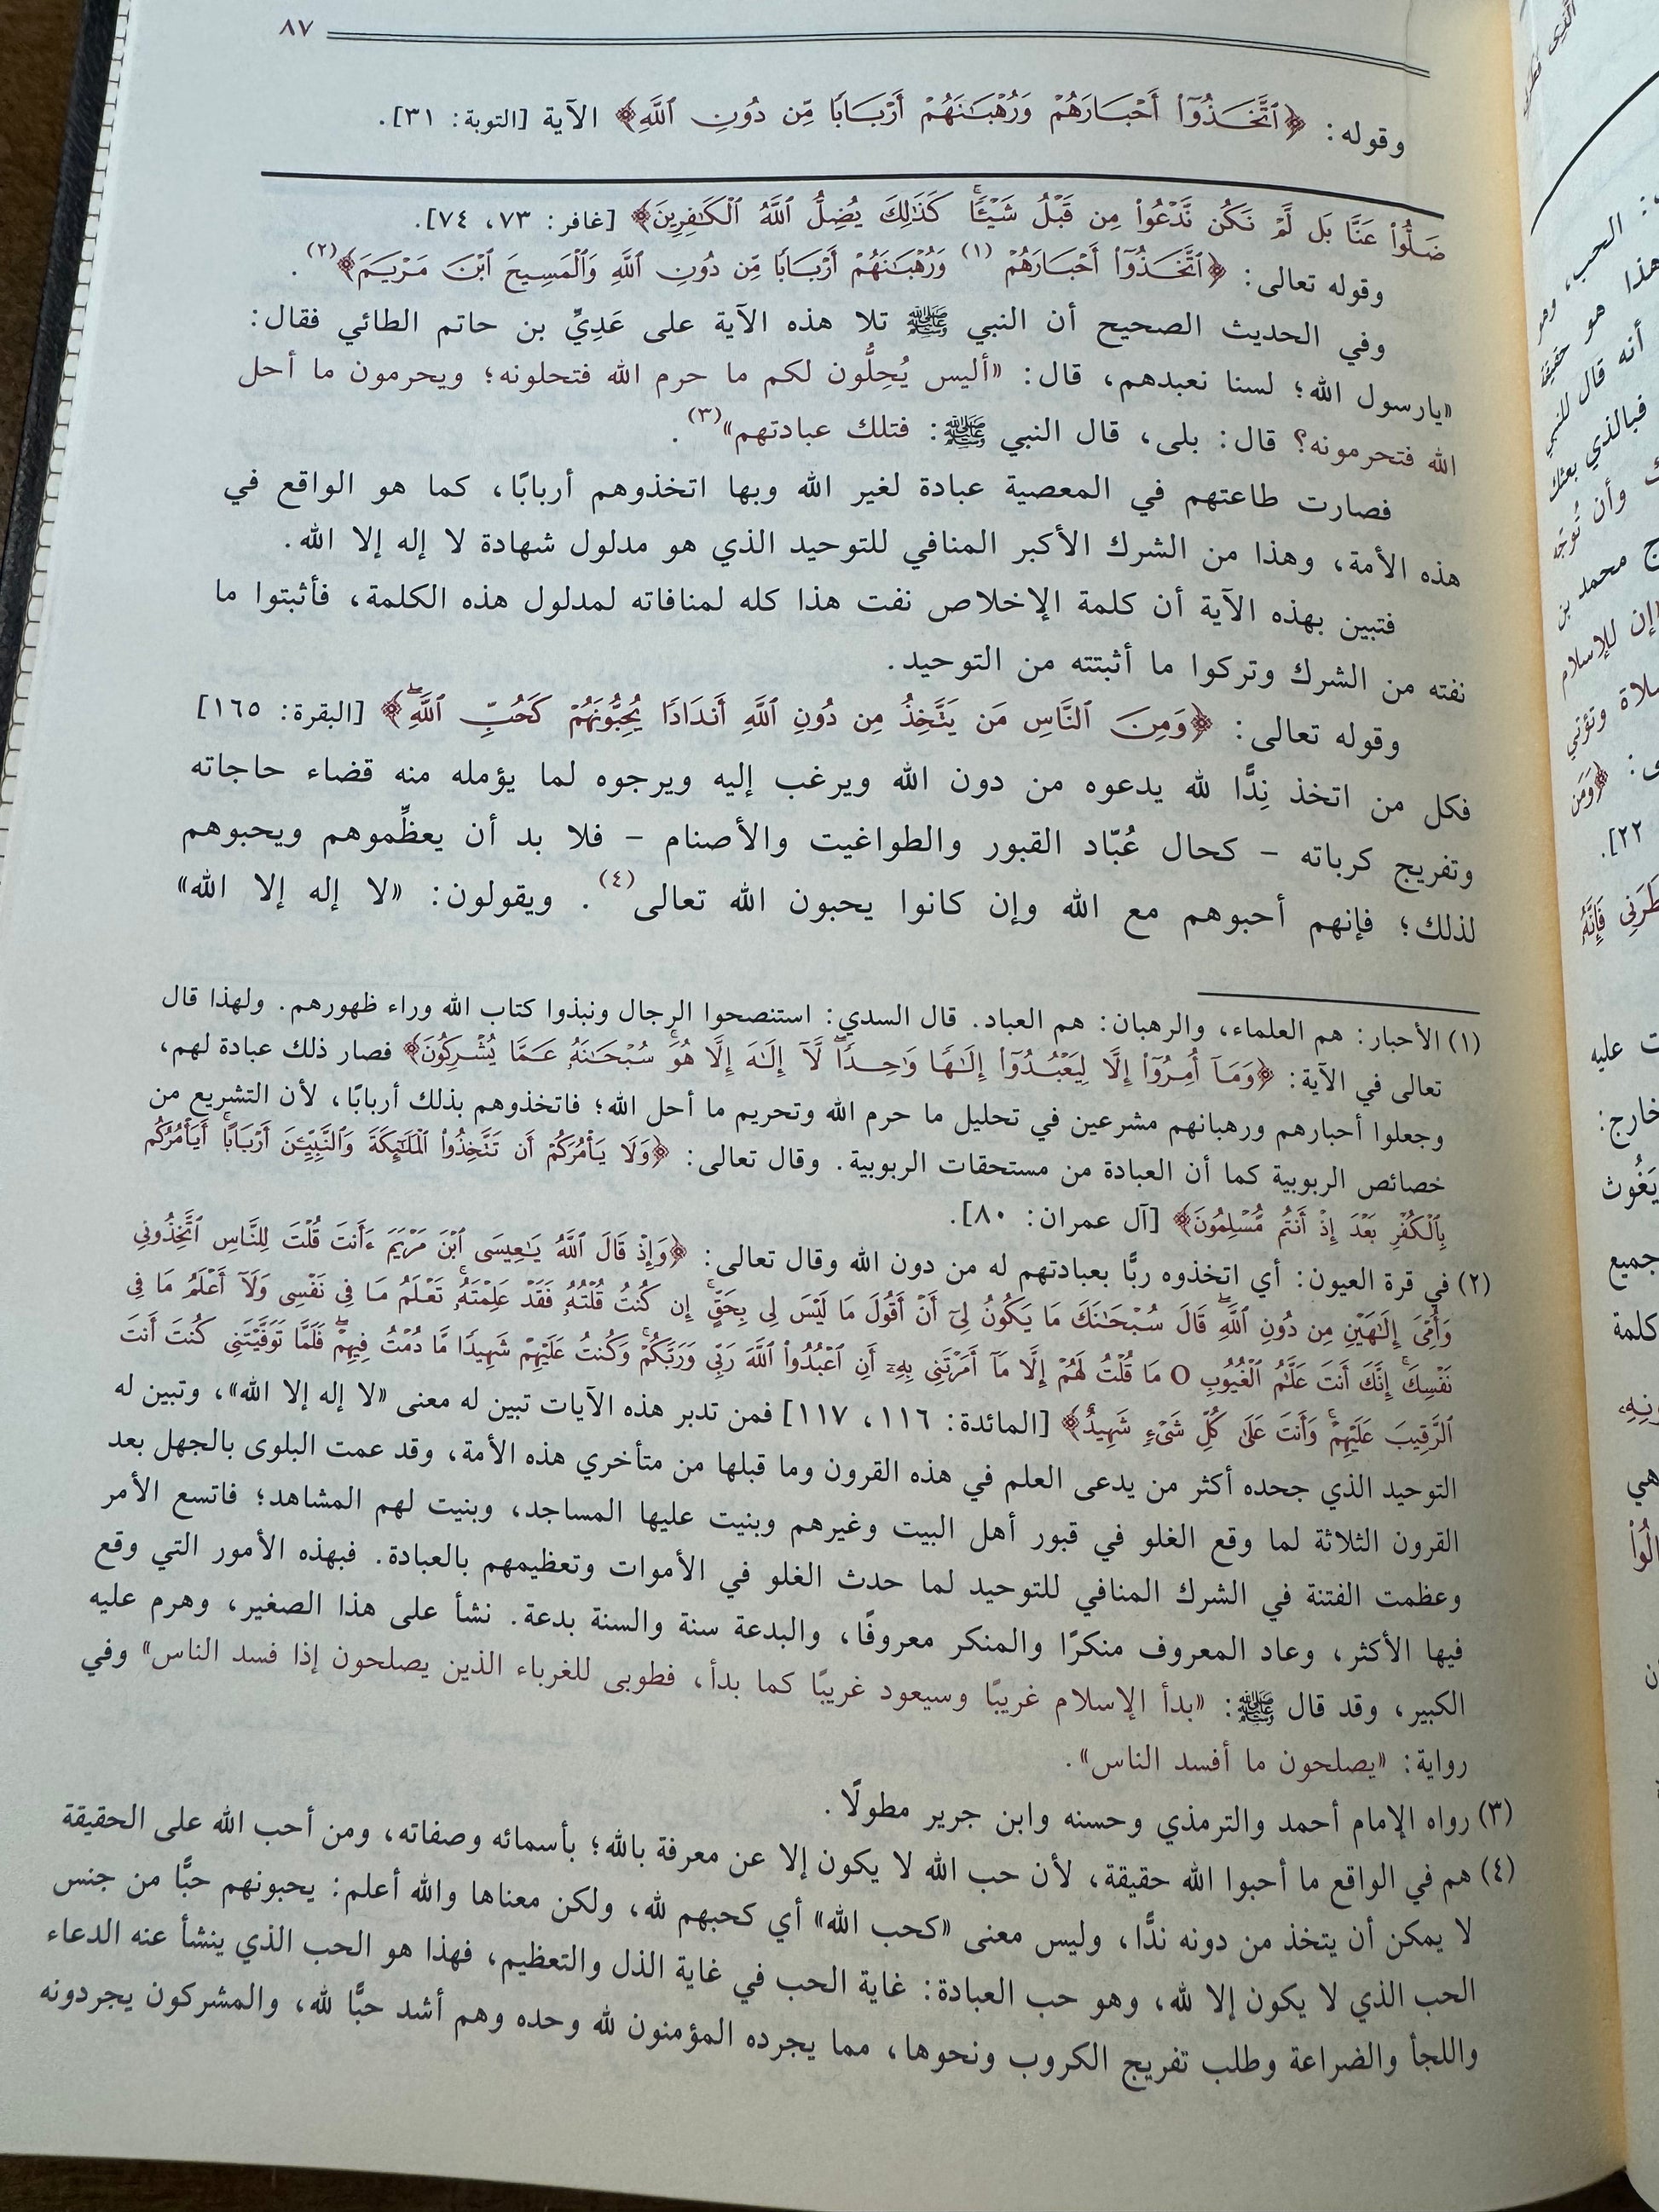 ٨٧
وقوله: ﴿ٱتَّخَذُوٓاْ أَحۡبَارَهُمۡ وَرُهۡبَٰنَهُمۡ أَرۡبَابٗا مِّن دُونِ ٱللَّهِ﴾ الآية [التوبة: ٣١].
ضَلُّواْ عَنَّا بَل لَّمۡ نَكُن نَّدۡعُواْ مِن قَبۡلُ شَيۡـٔٗاۚ كَذَٰلِكَ يُضِلُّ ٱللَّهُ ٱلۡكَٰفِرِينَ﴾ [غافر: ٧٣، ٧٤].
وقوله تعالى: ﴿ٱتَّخَذُوٓاْ أَحۡبَارَهُمۡ (١) وَرُهۡبَٰنَهُمۡ أَرۡبَابٗا مِّن دُونِ ٱللَّهِ وَٱلۡمَسِيحَ ٱبۡنَ مَرۡيَمَ﴾(٢).
وفي الحديث الصحيح أن النبي ﷺ تلا هذه الآية على عَدِيِّ بن حاتم الطائي فقال:
«يارسول الله؛ لسنا نعبدهم، قال: «أليس يُحِلُّون لكم ما حرم الله فتحلونه؛ ويحرمون ما أحل
الله فتحرمونه؟ قال: بلى، قال النبي ﷺ: فتلك عبادتهم»(٣).
فصارت طاعتهم في المعصية عبادة لغير الله وبها اتخذوهم أربابًا، كما هو الواقع في
هذه الأمة، وهذا من الشرك الأكبر المنافي للتوحيد الذي هو مدلول شهادة لا إله إلا الله.
فتبين بهذه الآية أن كلمة الإخلاص نفت هذا كله لمنافاته لمدلول هذه الكلمة، فأثبتوا ما
نفته من الشرك وتركوا ما أثبتته من التوحيد.
وقوله تعالى: ﴿وَمِنَ ٱلنَّاسِ مَن يَتَّخِذُ مِن دُونِ ٱللَّهِ أَندَادٗا يُحِبُّونَهُمۡ كَحُبِّ ٱللَّهِۖ﴾ [البقرة: ١٦٥]
فكل من اتخذ نِدًّا لله يدعوه من دون الله ويرغب إليه ويرجوه لما يؤمله منه قضاء حاجاته
وتفريج كرباته – كحال عُبّاد القبور والطواغيت والأصنام – فلا بد أن يعظِّموهم ويحبوهم
لذلك؛ فإنهم أحبوهم مع الله وإن كانوا يحبون الله تعالى(٤). ويقولون: «لا إله إلا الله»
(١) الأحبار: هم العلماء، والرهبان: هم العباد. قال السدي: استنصحوا الرجال ونبذوا كتاب الله وراء ظهورهم. ولهذا قال
تعالى في الآية: ﴿وَمَآ أُمِرُوٓاْ إِلَّا لِيَعۡبُدُوٓاْ إِلَٰهٗا وَٰحِدٗاۖ لَّآ إِلَٰهَ إِلَّا هُوَۚ سُبۡحَٰنَهُۥ عَمَّا يُشۡرِكُونَ﴾ فصار ذلك عبادة لهم،
وجعلوا أحبارهم ورهبانهم مشرعين في تحليل ما حرم الله وتحريم ما أحل الله؛ فاتخذوهم بذلك أربابًا، لأن التشريع من
خصائص الربوبية كما أن العبادة من مستحقات الربوبية. وقال تعالى: ﴿وَلَا يَأۡمُرَكُمۡ أَن تَتَّخِذُواْ ٱلۡمَلَٰٓئِكَةَ وَٱلنَّبِيِّـۧنَ أَرۡبَابًاۗ أَيَأۡمُرُكُم
بِٱلۡكُفۡرِ بَعۡدَ إِذۡ أَنتُم مُّسۡلِمُونَ﴾ [آل عمران: ٨٠].
(٢) في قرة العيون: أي اتخذوه ربًّا بعبادتهم له من دون الله وقال تعالى: ﴿وَإِذۡ قَالَ ٱللَّهُ يَٰعِيسَى ٱبۡنَ مَرۡيَمَ ءَأَنتَ قُلۡتَ لِلنَّاسِ ٱتَّخِذُونِي
وَأُمِّيَ إِلَٰهَيۡنِ مِن دُونِ ٱللَّهِۖ قَالَ سُبۡحَٰنَكَ مَا يَكُونُ لِيٓ أَنۡ أَقُولَ مَا لَيۡسَ لِي بِحَقٍّۚ إِن كُنتُ قُلۡتُهُۥ فَقَدۡ عَلِمۡتَهُۥۚ تَعۡلَمُ مَا فِي نَفۡسِي وَلَآ أَعۡلَمُ مَا فِي
نَفۡسِكَۚ إِنَّكَ أَنتَ عَلَّٰمُ ٱلۡغُيُوبِ O مَا قُلۡتُ لَهُمۡ إِلَّا مَآ أَمَرۡتَنِي بِهِۦٓ أَنِ ٱعۡبُدُواْ ٱللَّهَ رَبِّي وَرَبَّكُمۡۚ وَكُنتُ عَلَيۡهِمۡ شَهِيدٗا مَّا دُمۡتُ فِيهِمۡۖ فَلَمَّا تَوَفَّيۡتَنِي كُنتَ أَنتَ
ٱلرَّقِيبَ عَلَيۡهِمۡۚ وَأَنتَ عَلَىٰ كُلِّ شَيۡءٖ شَهِيدٌ﴾ [المائدة: ١١٦، ١١٧] فمن تدبر هذه الآيات تبين له معنى «لا إله إلا الله»، وتبين له
التوحيد الذي جحده أكثر من يدعى العلم في هذه القرون وما قبلها من متأخري هذه الأمة، وقد عمت البلوى بالجهل بعد
القرون الثلاثة لما وقع الغلو في قبور أهل البيت وغيرهم وبنيت عليها المساجد، وبنيت لهم المشاهد؛ فاتسع الأمر
وعظمت الفتنة في الشرك المنافي للتوحيد لما حدث الغلو في الأموات وتعظيمهم بالعبادة. فبهذه الأمور التي وقع
فيها الأكثر، وعاد المعروف منكرًا والمنكر معروفًا، والبدعة سنة والسنة بدعة. نشأ على هذا الصغير، وهرم عليه
الكبير، وقد قال ﷺ: «بدأ الإسلام غريبًا وسيعود غريبًا كما بدأ، فطوبى للغرباء الذين يصلحون إذا فسد الناس» وفي
رواية: «يصلحون ما أفسد الناس».
(٣) رواه الإمام أحمد والترمذي وحسنه وابن جرير مطولًا.
(٤) هم في الواقع ما أحبوا الله حقيقة، لأن حب الله لا يكون إلا عن معرفة بالله؛ بأسمائه وصفاته، ومن أحب الله على الحقيقة
لا يمكن أن يتخذ من دونه ندًّا، وليس معنى «كحب الله» أي كحبهم لله، ولكن معناها والله أعلم: يحبونهم حبًّا من جنس
الحب الذي لا يكون إلا لله، وهو حب العبادة: غاية الحب في غاية الذل والتعظيم، فهذا هو الحب الذي ينشأ عنه الدعاء
واللجأ والضراعة وطلب تفريج الكروب ونحوها، مما يجرده المؤمنون لله وحده وهم أشد حبًّا لله، والمشركون يجردونه